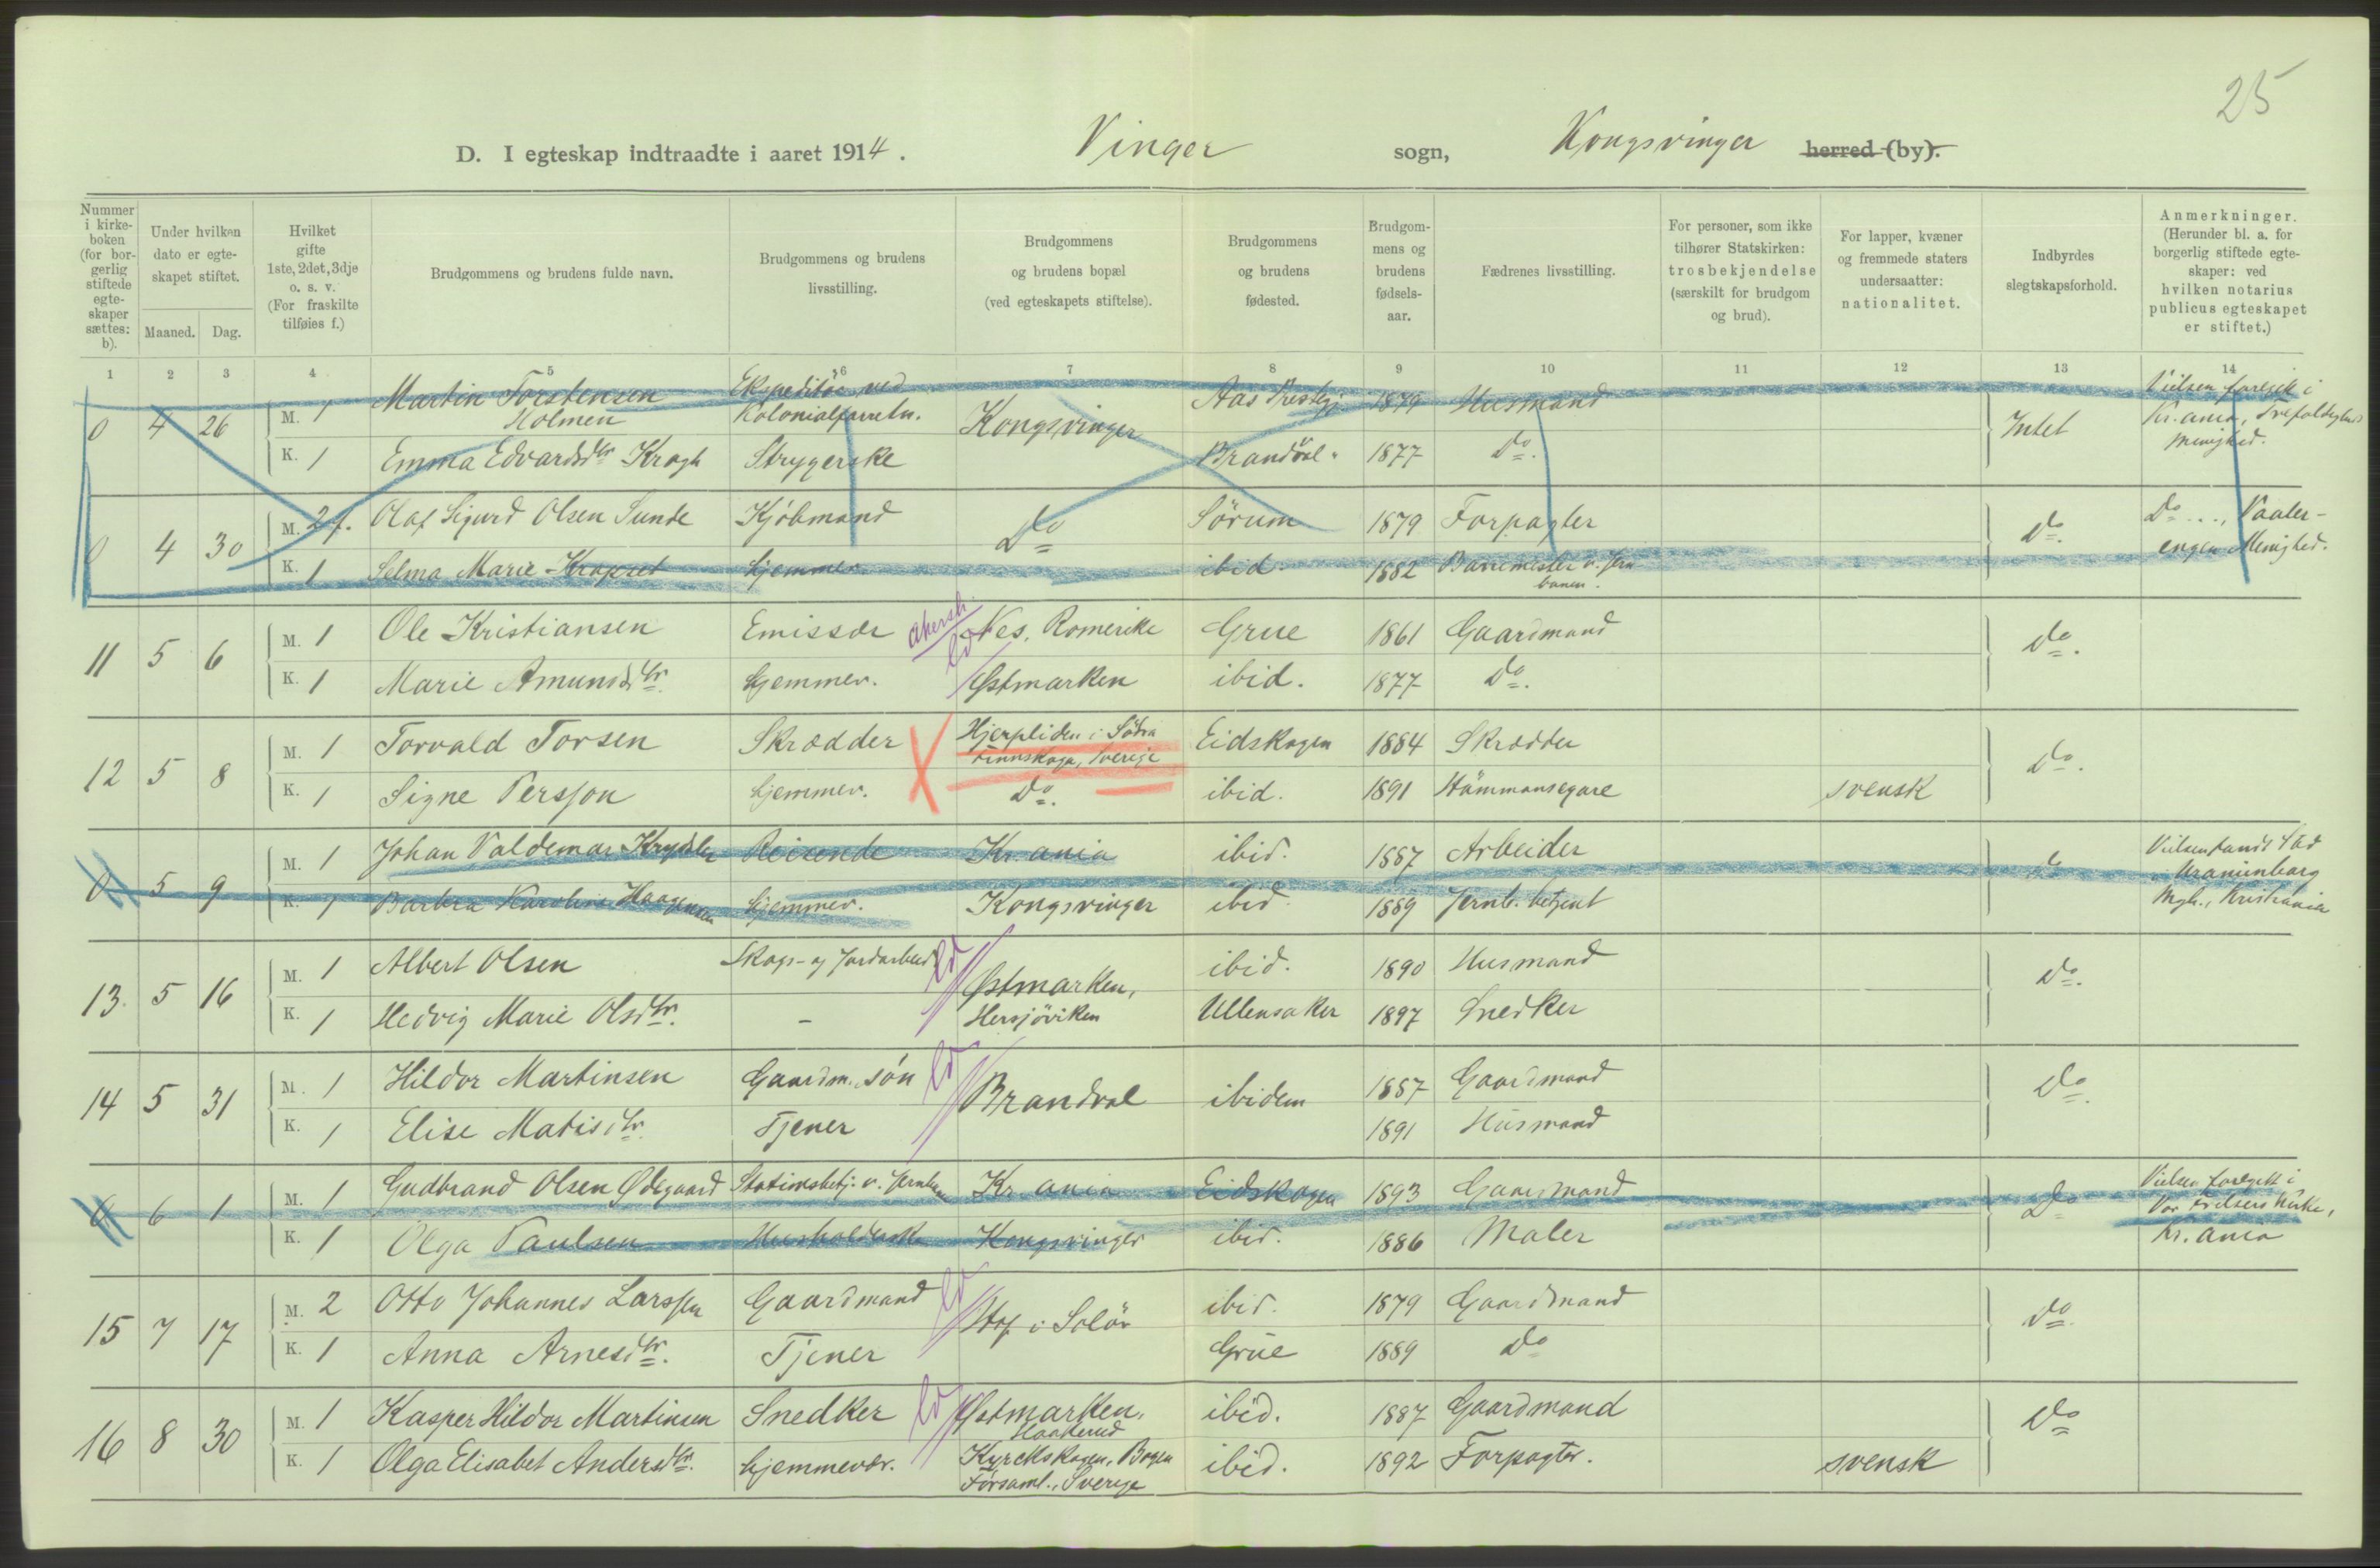 25
D. I egteskap indtraadte i aaret 1914. Vinger sogn, Kongsvinger herred (by).
Nummer i kirkeboken (for borgerlig stiftede egteskaper sættes: b).
Under hvilken dato er egteskapet stiftet.
Maaned. Dag.
Hvilket gifte 1ste, 2det, 3dje o. s. v. (For fraskilte tilføies f.)
Brudgommens og brudens fulde navn.
Brudgommens og brudens livsstilling.
Brudgommens og brudens bopæl (ved egteskapets stiftelse).
Brudgommens og brudens fødested.
Brudgommens og brudens fødselsaar.
Fædrenes livsstilling.
For personer, som ikke tilhører Statskirken: trosbekjendelse (særskilt for brudgom og brud).
For lapper, kvæner og fremmede staters undersaatter: nationalitet.
Indbyrdes slegtskapsforhold.
Anmerkninger. (Herunder bl. a. for borgerlig stiftede egteskaper: ved hvilken notarius publicus egteskapet er stiftet.)
1 2 3 4 5 6 7 8 9 10 11 12 13 14
0 4 26 M. 1 Martin Torstensen Holmen Ekspeditør ved Kolonialforretn. Kongsvinger Aas Prestegj. 1879 Husmand Intet Vielsen foregik i Kr.ania, Trefoldigheds menighed.
K. 1 Emma Edvardsdtr Krogh Strygerske Brandval 1877 Do.
0 4 30 M. 2 f. Olaf Sigurd Olsen Sunde Kjöbmand Do Sörum 1879 Forpagter Do. Do ..., Vaalerengen Menighed.
K. 1 Selma Marie hjemmev. ibid. 1882 Banemester v. Jernbanen.
11 5 6 M. 1 Ole Kristiansen Emissær Akersh. Nes, Romerike Grue 1861 Gaardmand Do.
K. 1 Marie Amundsdtr. hjemmev. Østmarken ibid. 1877 Do.
12 5 8 M. 1 Torvald Torsen Skrædder Hjerpliden i Södra Finnskoga, Sverige Eidskogen 1884 Skrædder Do.
K. 1 Signe Persson hjemmev. Do. ibid. 1891 Hämmansegare svensk
0 5 9 M. 1 Johan Valdemar Reisende Kr.ania ibid. 1887 Arbeider Do Vielsen fandt Sted i Uranienborg Mgh., Kristiania
K. 1 Barbra Karoline Haagensen hjemmev. Kongsvinger ibid. 1889 Jernb. betjent
13. 5 16 M. 1 Albert Olsen Skogs- og Jordarbeid. Østmarken, ibid. 1890 Husmand Do.
K. 1 Hedvig Marie Olsdtr. - Hersjöviken Ullensaker 1897 Snedker
14 5 31 M. 1 Hildor Martinsen Gaardm. sön Brandval ibidem 1887 Gaardmand Do.
K. 1 Elise Matisdtr. Tjener 1891 Husmand
0 6 1 M. 1 Gudbrand Olsen Ødegaard Stationsbetj. v. Jernbanen Kr.ania Eidskogen 1893 Gaardmand Do Vielsen foregik i Vor Frelsers Kirke, Kr.ania
K. 1 Olga Paulsen Husholderske Kongsvinger ibid. 1886 Maler
15 7 17 M. 2 Otto Johannes Larssen Gaardmand Hof i Solör ibid. 1879 Gaardmand Do.
K. 1 Anna Arnesdtr. Tjener Grue 1889 Do
16 8 30 M. 1 Kasper Hildor Martinsen Snedker Østmarken, Haakerud ibid. 1887 Gaardmand Do
K. 1 Olga Elisabet Andersdtr. hjemmevær. Kyrckskogen, Bogen Församl., Sverige ibid. 1892 Forpagter. svensk